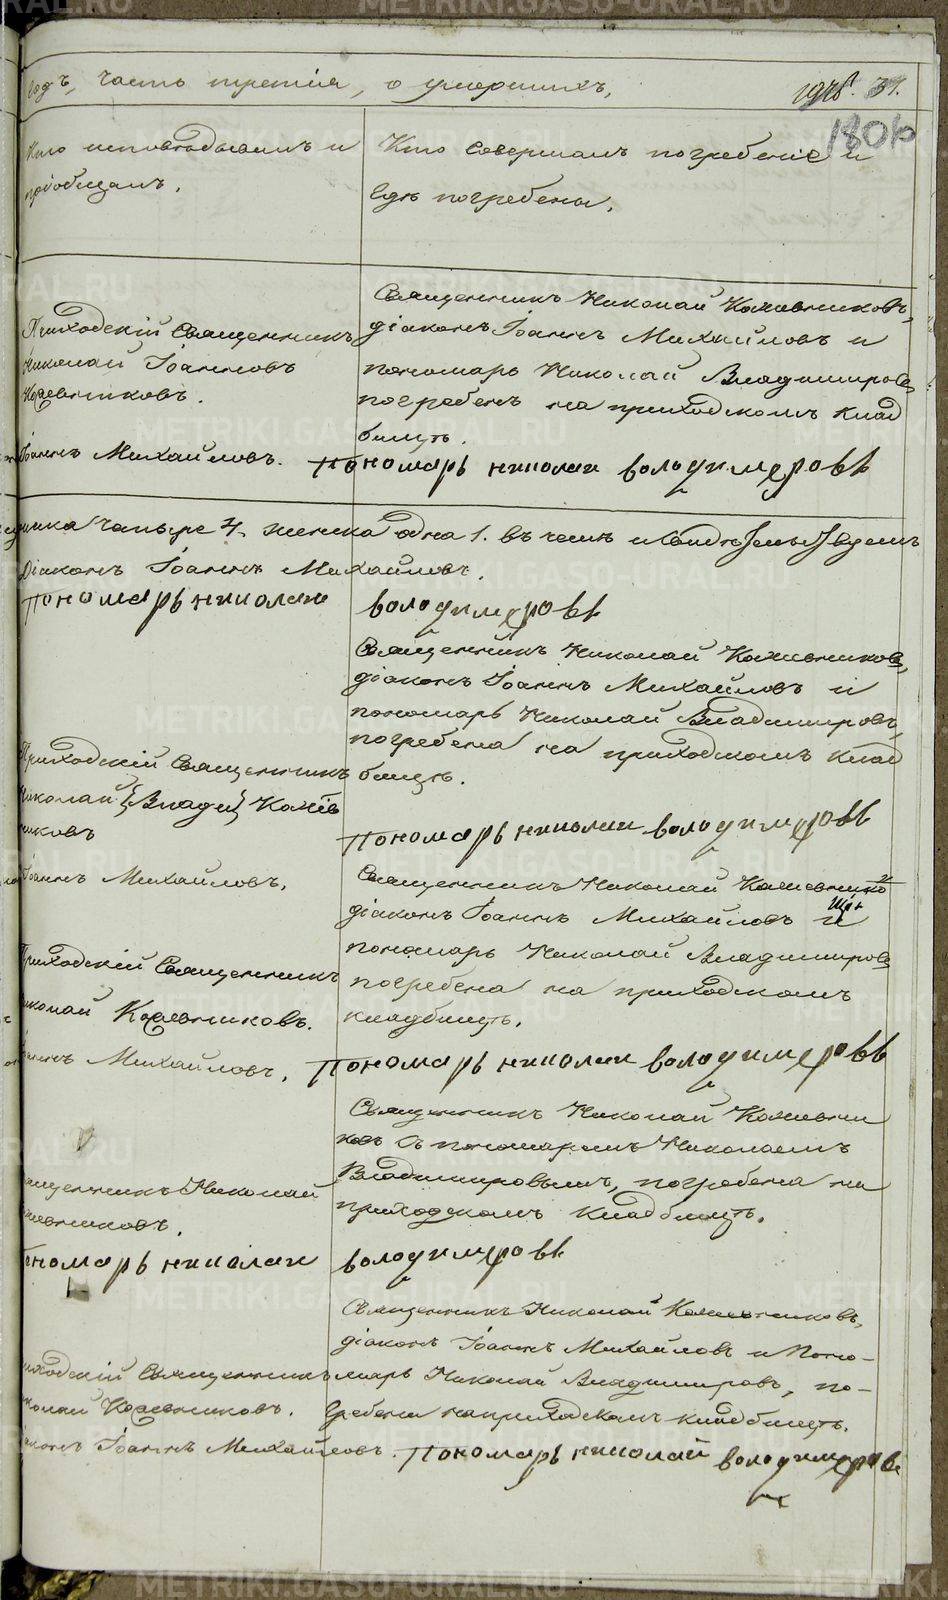 годъ, часть третія, о умершихъ,
180
Кто исповѣдывалъ и
пріобщалъ.
Кто совершалъ погребеніе и
гдѣ погребены.
Приходскій Священникъ
Николай Іоанновъ
Кожевниковъ.
Іоаннъ Михайловъ.
Священникъ Николай Кожевниковъ,
діаконъ Іоаннъ Михайловъ и
пономарь Николай Владимировъ
погребенъ на приходскомъ клад
бищѣ.
Пономарь николаи володимеровъ
четыре 4. женска одна 1. въ чемъ и
Діаконъ Іоаннъ Михайловъ.
Пономарь николаи володимеровъ
Приходскій Священникъ
Николай {Влади} Кожев
никовъ
Іоаннъ Михайловъ.
Священникъ Николай Кожевниковъ,
діаконъ Іоаннъ Михайловъ и
пономарь Николай Владимировъ,
погребена на приходскомъ клад
бищѣ.
Пономарь николаи володимеровъ
Приходскій Священникъ
Николай Кожевниковъ.
Іоаннъ Михайловъ.
Священникъ Николай Кожевнико
діаконъ Іоаннъ Михайловъ и
пономарь Николай Владимировъ
погребена на приходскомъ
кладбищѣ.
Пономарь николаи володимеровъ
Священникъ Николай
Кожевниковъ.
Священникъ Николай Кожевни
ковъ съ пономаремъ Николаемъ
Владимировымъ, погребена на
приходскомъ кладбищѣ.
Пономарь николаи володимеровъ
Приходскій Священникъ
Николай Кожевниковъ.
Діаконъ Іоаннъ Михайловъ.
Священникъ Николай Кожевниковъ,
діаконъ Іоаннъ Михайловъ и Поно-
марь Николай Владимировъ, по-
гребены на приходскомъ кладбищѣ.
Пономарь николай володимеровъ
METRIKI.GASO-URAL.RU